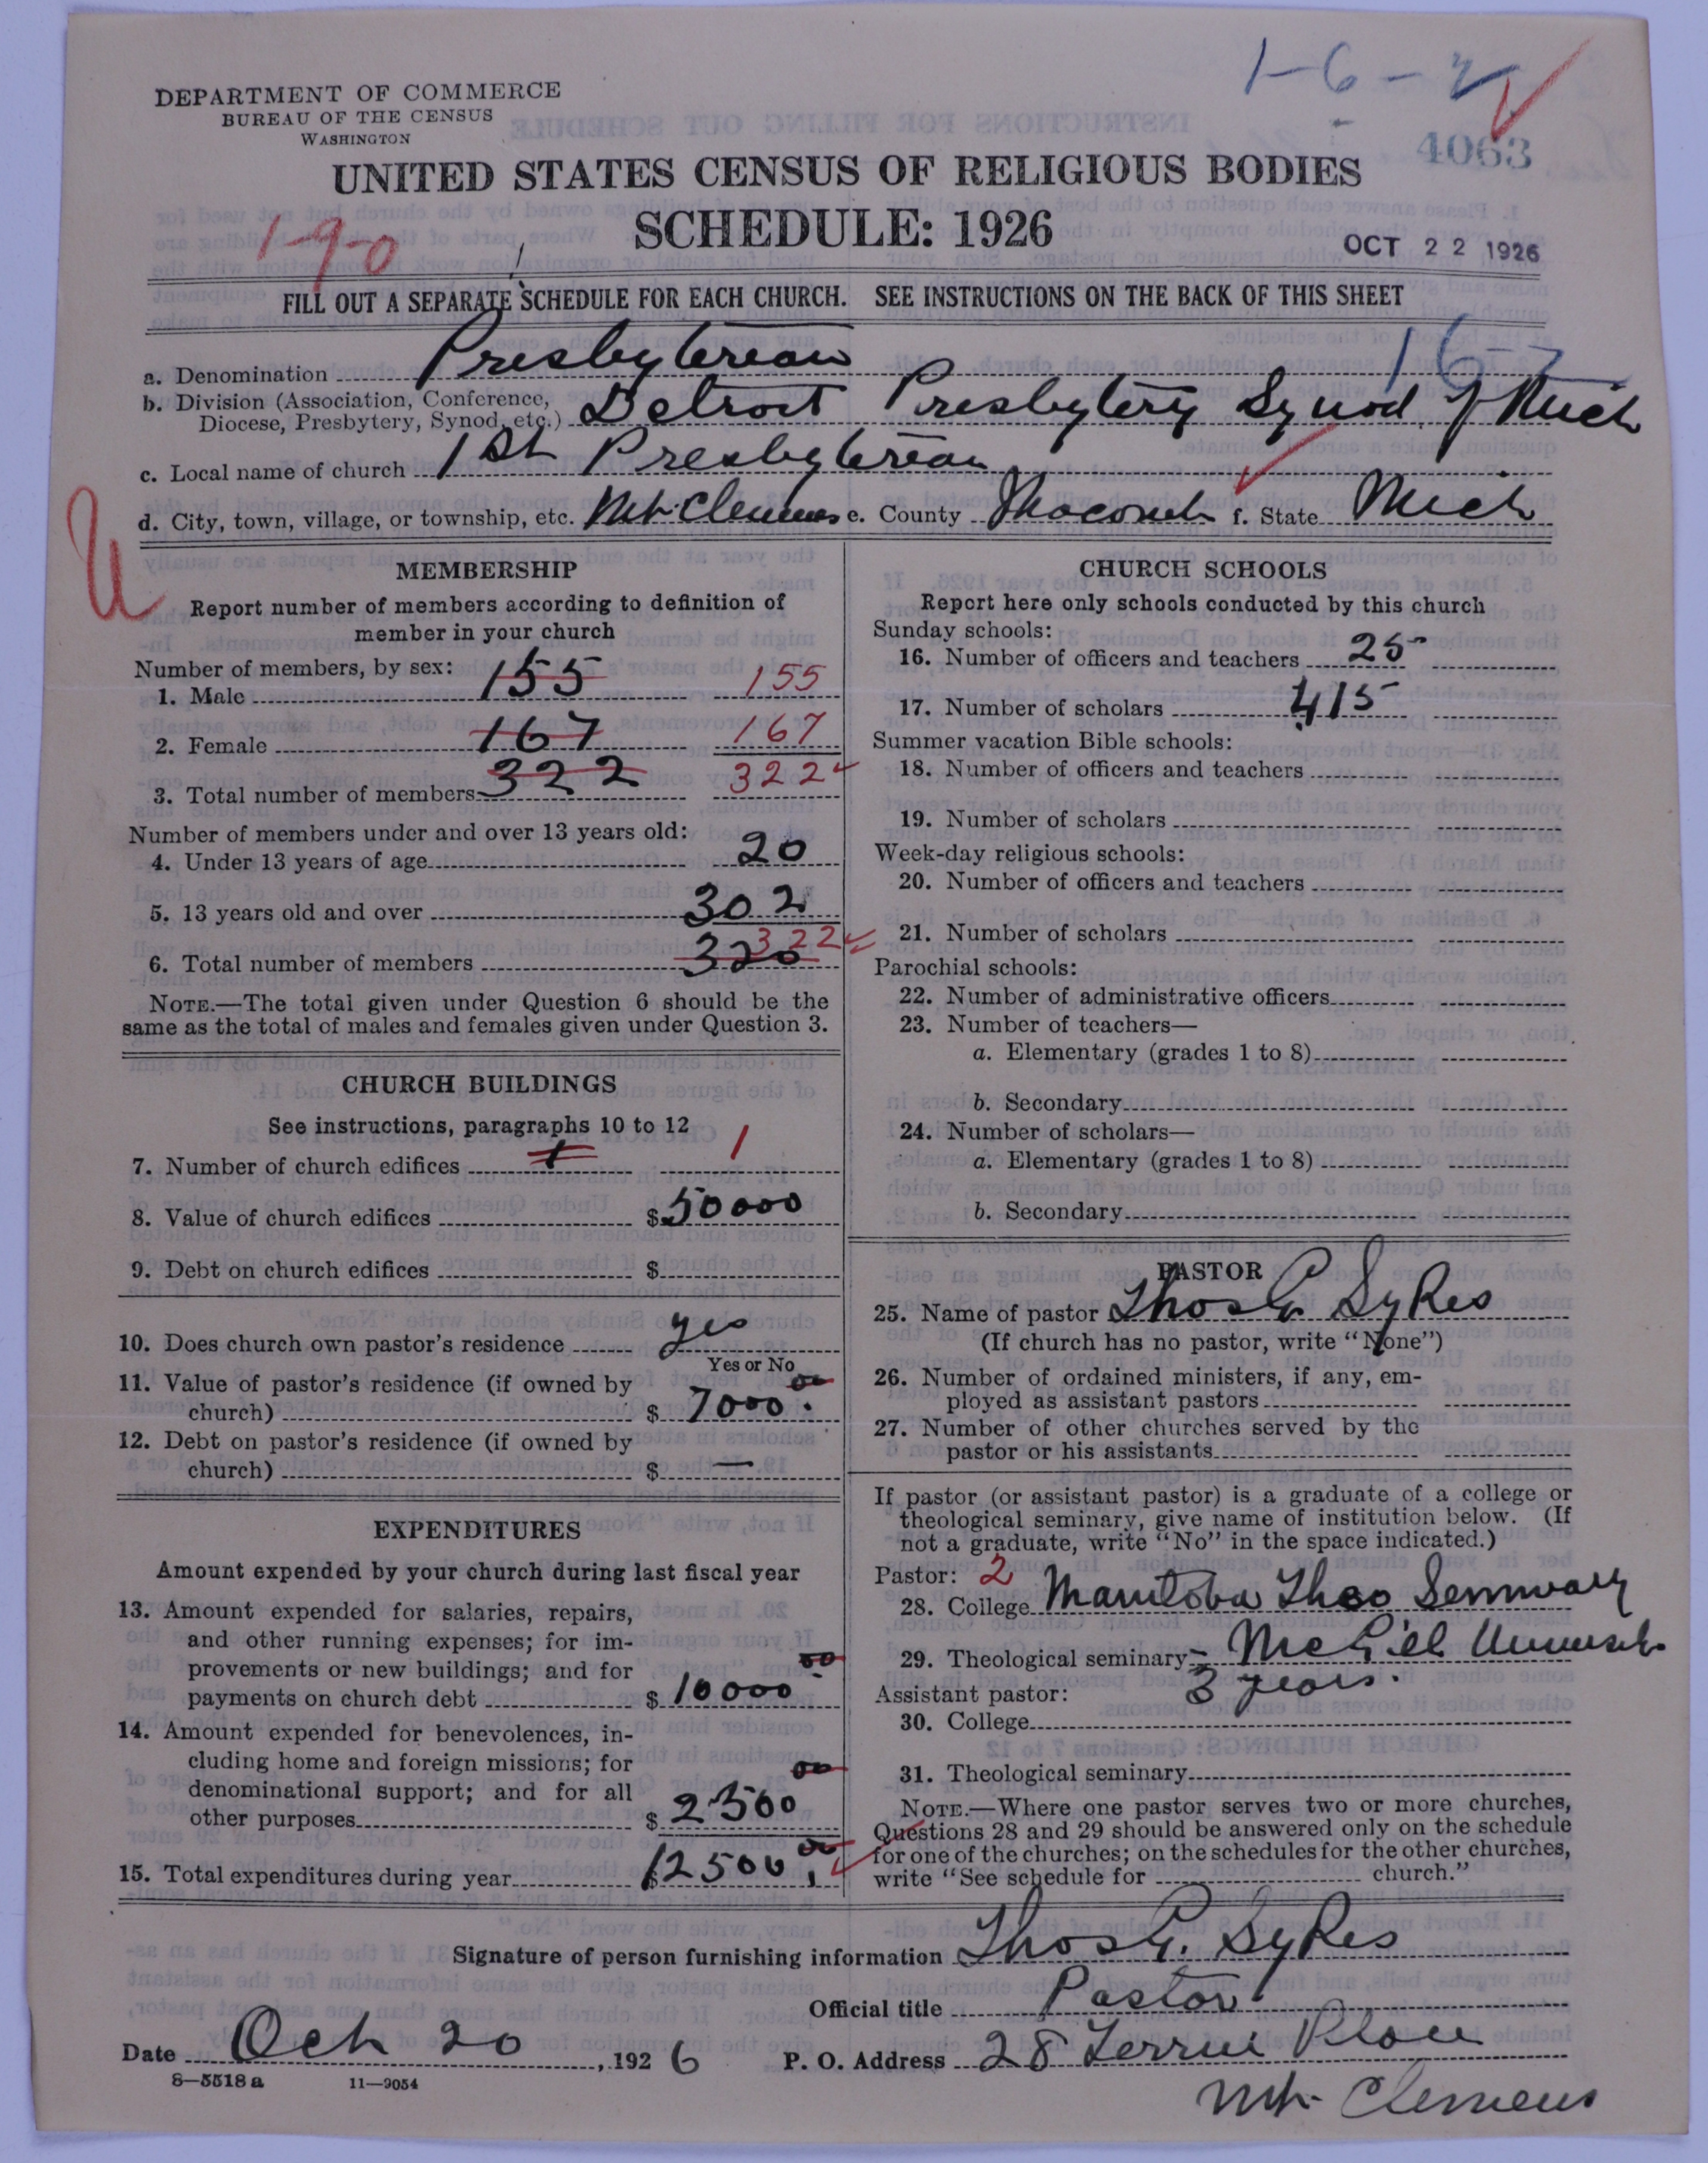 1-6-2
DEPARTMENT OF COMMERCE
BUREAU OF THE CENSUS
WASHINGTON
4063
UNITED STATES CENSUS OF RELIGIOUS BODIES
SCHEDULE: 1926
1-9-0
OCT 22 1926
FILL OUT A SEPARATE SCHEDULE FOR EACH CHURCH. SEE INSTRUCTIONS ON THE BACK OF THIS SHEET
16-7
a. Denomination Presbyterian
b. Division (Association, Conference, Diocese, Presbytery, Synod, etc.) Detroit Presbytery Synod of Mich
c. Local name of church 1st Presbyterian
d. City, town, village, or township, etc. Mt Clemens e. County Macomb f. State Mich
U
MEMBERSHIP
Report number of members according to definition of
member in your church
Number of members, by sex:
1. Male 155 155
2. Female 167 167
3. Total number of members 322 322
Number of members under and over 13 years old:
4. Under 13 years of age 20
5. 13 years old and over 302
6. Total number of members 320 322
NOTE.—The total given under Question 6 should be the
same as the total of males and females given under Question 3.
CHURCH BUILDINGS
See instructions, paragraphs 10 to 12
7. Number of church edifices 1 1
8. Value of church edifices $50000
9. Debt on church edifices $
10. Does church own pastor's residence yes
Yes or No
11. Value of pastor's residence (if owned by
church) $ 7000.00
12. Debt on pastor's residence (if owned by
church) $ —
EXPENDITURES
Amount expended by your church during last fiscal year
13. Amount expended for salaries, repairs,
and other running expenses; for im-
provements or new buildings; and for
payments on church debt $ 10000 00
14. Amount expended for benevolences, in-
cluding home and foreign missions; for
denominational support; and for all
other purposes $ 2500 00
15. Total expenditures during year $ 12500.00
CHURCH SCHOOLS
Report here only schools conducted by this church
Sunday schools:
16. Number of officers and teachers 25
17. Number of scholars 415
Summer vacation Bible schools:
18. Number of officers and teachers
19. Number of scholars
Week-day religious schools:
20. Number of officers and teachers
21. Number of scholars
Parochial schools:
22. Number of administrative officers
23. Number of teachers—
a. Elementary (grades 1 to 8)
b. Secondary
24. Number of scholars—
a. Elementary (grades 1 to 8)
b. Secondary
PASTOR
25. Name of pastor Thos G. Sykes
(If church has no pastor, write "None")
26. Number of ordained ministers, if any, em-
ployed as assistant pastors
27. Number of other churches served by the
pastor or his assistants
If pastor (or assistant pastor) is a graduate of a college or
theological seminary, give name of institution below. (If
not a graduate, write "No" in the space indicated.)
Pastor: 2
28. College Manitoba Theo Seminary
29. Theological seminary McGill
3 years.
Assistant pastor:
30. College
31. Theological seminary
NOTE.—Where one pastor serves two or more churches,
Questions 28 and 29 should be answered only on the schedule
for one of the churches; on the schedules for the other churches,
write "See schedule for church."
Signature of person furnishing information Thos G. Sykes
Official title Pastor
Date Oct 20, 1926 P. O. Address 28 Place
Mt. Clemens
8—5518 a 11—9054